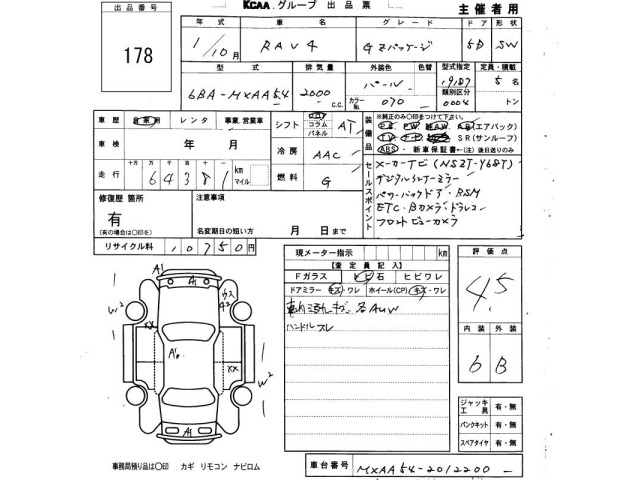 KCAA グループ 出品票
主催者用
出品番号
178
年式
車名
グレード
ドア
形状
1/10月
RAV4
G Zパッケージ
5D
SW
型式
排気量
外装色
色替
型式指定
定員・積載
6BA-MXAA54
2000
c.c.
パール
カラーNo.
070
19187
類別区分
0004
5名
トン
車歴
自家用
レンタ
事業、営業車
シフト
コラム
パネル
AT
車検
年
月
冷房
AAC
走行
十万
万
千
百
十
一
64381
km
マイル
燃料
G
装備品
※純正のみ〇印をつけて下さい。
PS PW AW AB(エアバック)
SR(サンルーフ)
ABS・新車保証書←(注)後日送りのみ
セールスポイント
メーカーTV(NSZT-Y68T)
デジタルインナーミラー
パワーバックドア・BSM
ETC・Bカメラ・ドラレコ
フロントビューカメラ
修復歴 箇所
有
(有の場合は〇印を)
注意事項
名変期日の短い方
月
日まで
リサイクル料
10750円
現メーター指示
km
【査定員記入】
Fガラス
トビ石
ヒビワレ
ドアミラー キズ・ワレ
ホイール(CP) キズ・ワレ
ハンドルスレ
評価点
4.5
内装
外装
6
B
A1
ウス
A2
W2
XX
A1
XX
W2
A1
ジャッキ工具
有・無
パンクキット
有・無
スペアタイヤ
有・無
事務局預り品は〇印
カギ リモコン ナビロム
車台番号
MXAA54-2012200